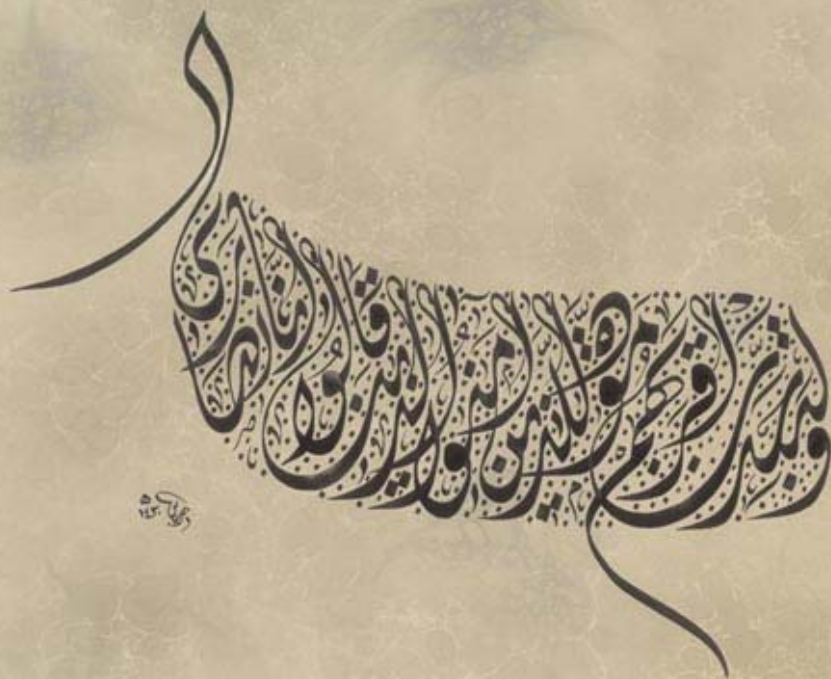 ولتجدن أقربهم مودة للذين آمنوا الذين قالوا إنا نصارى
١٤٣٠